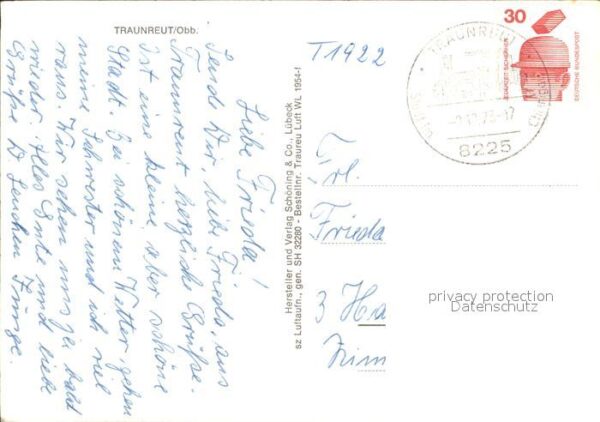 TRAUNREUT/Obb.
Liebe Frieda!
Sende Dir, liebe Frieda, aus
Traunreut herzliche Grüße.
Ist eine kleine aber schöne
Stadt. Bei schönem Wetter gehen
meine Schwester und ich viel
raus. Wir sehen uns ja bald
wieder. Alles Gute und liebe
Grüße D. Lenchen
Hersteller und Verlag Schöning & Co., Lübeck
sz Luftaufn., gen. SH 32280 - Bestellnr. Traureu Luft WL 1954-1
T1922
TRAUNREUT
8225
30
JEDERZEIT SICHERHEIT
DEUTSCHE BUNDESPOST
Frl.
Frieda
3 Ha
privacy protection
Datenschutz